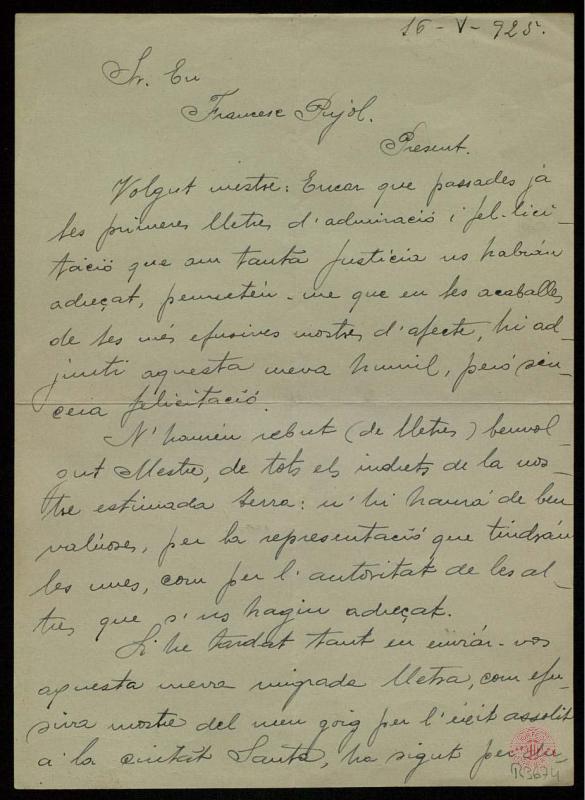 16 - V - 925.
Sr. En
Francesc Pujol.
Present.
Volgut mestre: Encar que passades já
les primeres lletres d'admiració i fel·lici-
tació que am tanta justicia us habrán
adreçat, permeteu-me que en les acaballes
de les més efusives mostres d'afecte, hi ad-
junti aquesta meva humil, peró sin-
cera felicitació.
N'haureu rebut (de lletres) benvol-
gut Mestre, de tots els indrets de la nos-
tre estimada terra: n'hi haurá de ben
valuoses, per la representació que tindrán
les unes, com per l'autoritat de les al-
tres que s'us hagin adreçat.
Si he tardat tant en enviár-vos
aquesta meva migrada lletra, com efu-
siva mostre del meu goig per l'éxit assolit
a la ciutat Santa, ha sigut per
R3674